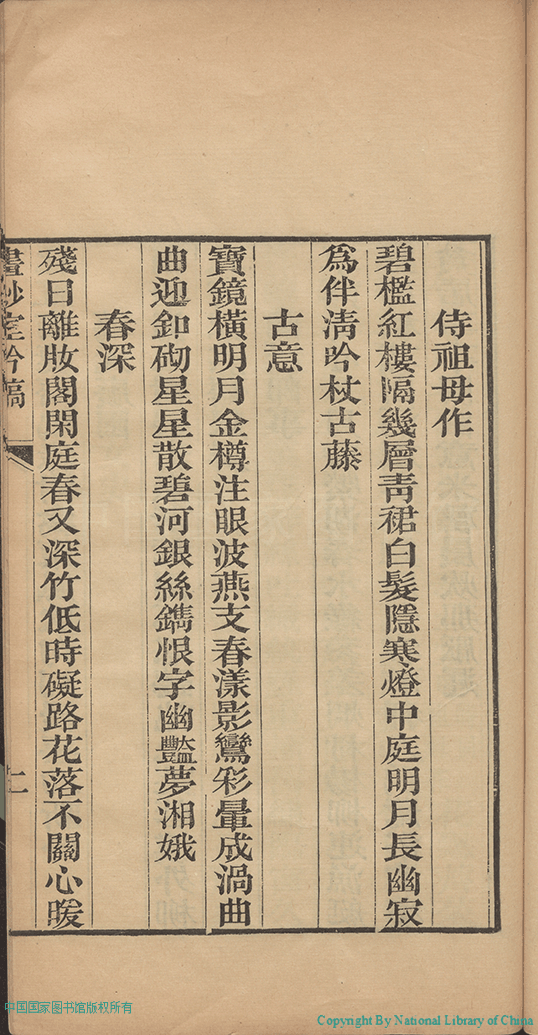 侍祖母作
碧檻紅樓隔幾層靑裙白髮隱寒燈中庭明月長幽寂
爲伴淸吟杖古藤
古意
寶鏡橫明月金樽注眼波燕支春漾影鸞彩暈成渦曲
曲迎釦砌星星散碧河銀絲鐫恨字幽豔夢湘娥
春深
殘日離妝閣閑庭春又深竹低時礙路花落不關心暖
畫紗室吟稿
二
中国国家图书馆版权所有
Copyright By National Library of China